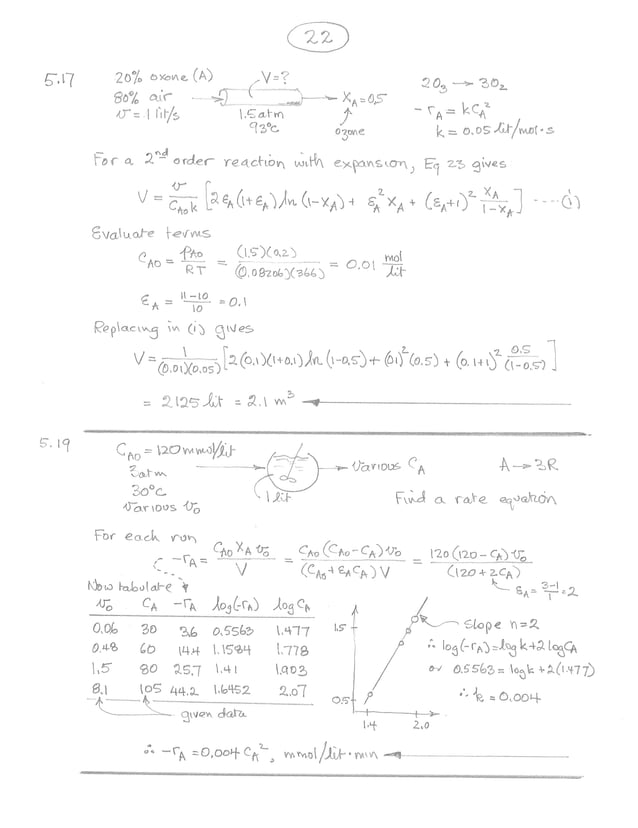 22
5.17
20% oxone (A)
80% air
v = 1 lit/s
V = ?
1.5 atm
93°C
X_A = 0.5
ozone
2O₃ → 3O₂
-r_A = kC_A²
k = 0.05 lit/mol·s
For a 2nd order reaction with expansion, Eq 23 gives
V = v/(C_A0 k) [2ε_A(1+ε_A) ln(1-X_A) + ε_A² X_A + (ε_A+1)² X_A/(1-X_A)] ····(i)
Evaluate terms
C_A0 = p_A0/RT = (1.5)(0.2)/(0.08206)(366) = 0.01 mol/lit
ε_A = (11-10)/10 = 0.1
Replacing in (i) gives
V = 1/(0.01)(0.05) [2(0.1)(1+0.1) ln(1-0.5) + (0.1)²(0.5) + (0.1+1)² 0.5/(1-0.5)]
= 2125 lit = 2.1 m³
5.19
C_A0 = 120 mmol/lit
3 atm
30°C
various v₀
1 lit
various C_A
A → 3R
Find a rate equation
For each run
-r_A = C_A0 X_A v₀/V = C_A0(C_A0-C_A)v₀/(C_A0+ε_A C_A)V = 120(120-C_A)v₀/(120+2C_A)
ε_A = (3-1)/1 = 2
Now tabulate
v₀ C_A -r_A log(-r_A) log C_A
0.06 30 3.6 0.5563 1.477
0.48 60 14.4 1.1584 1.778
1.5 80 25.7 1.41 1.903
8.1 105 44.2 1.6452 2.07
given data
1.5
0.5
1.4 2.0
slope n=2
∴ log(-r_A) = log k + 2 log C_A
or 0.5563 = log k + 2(1.477)
∴ k = 0.004
∴ -r_A = 0.004 C_A², mmol/lit·min